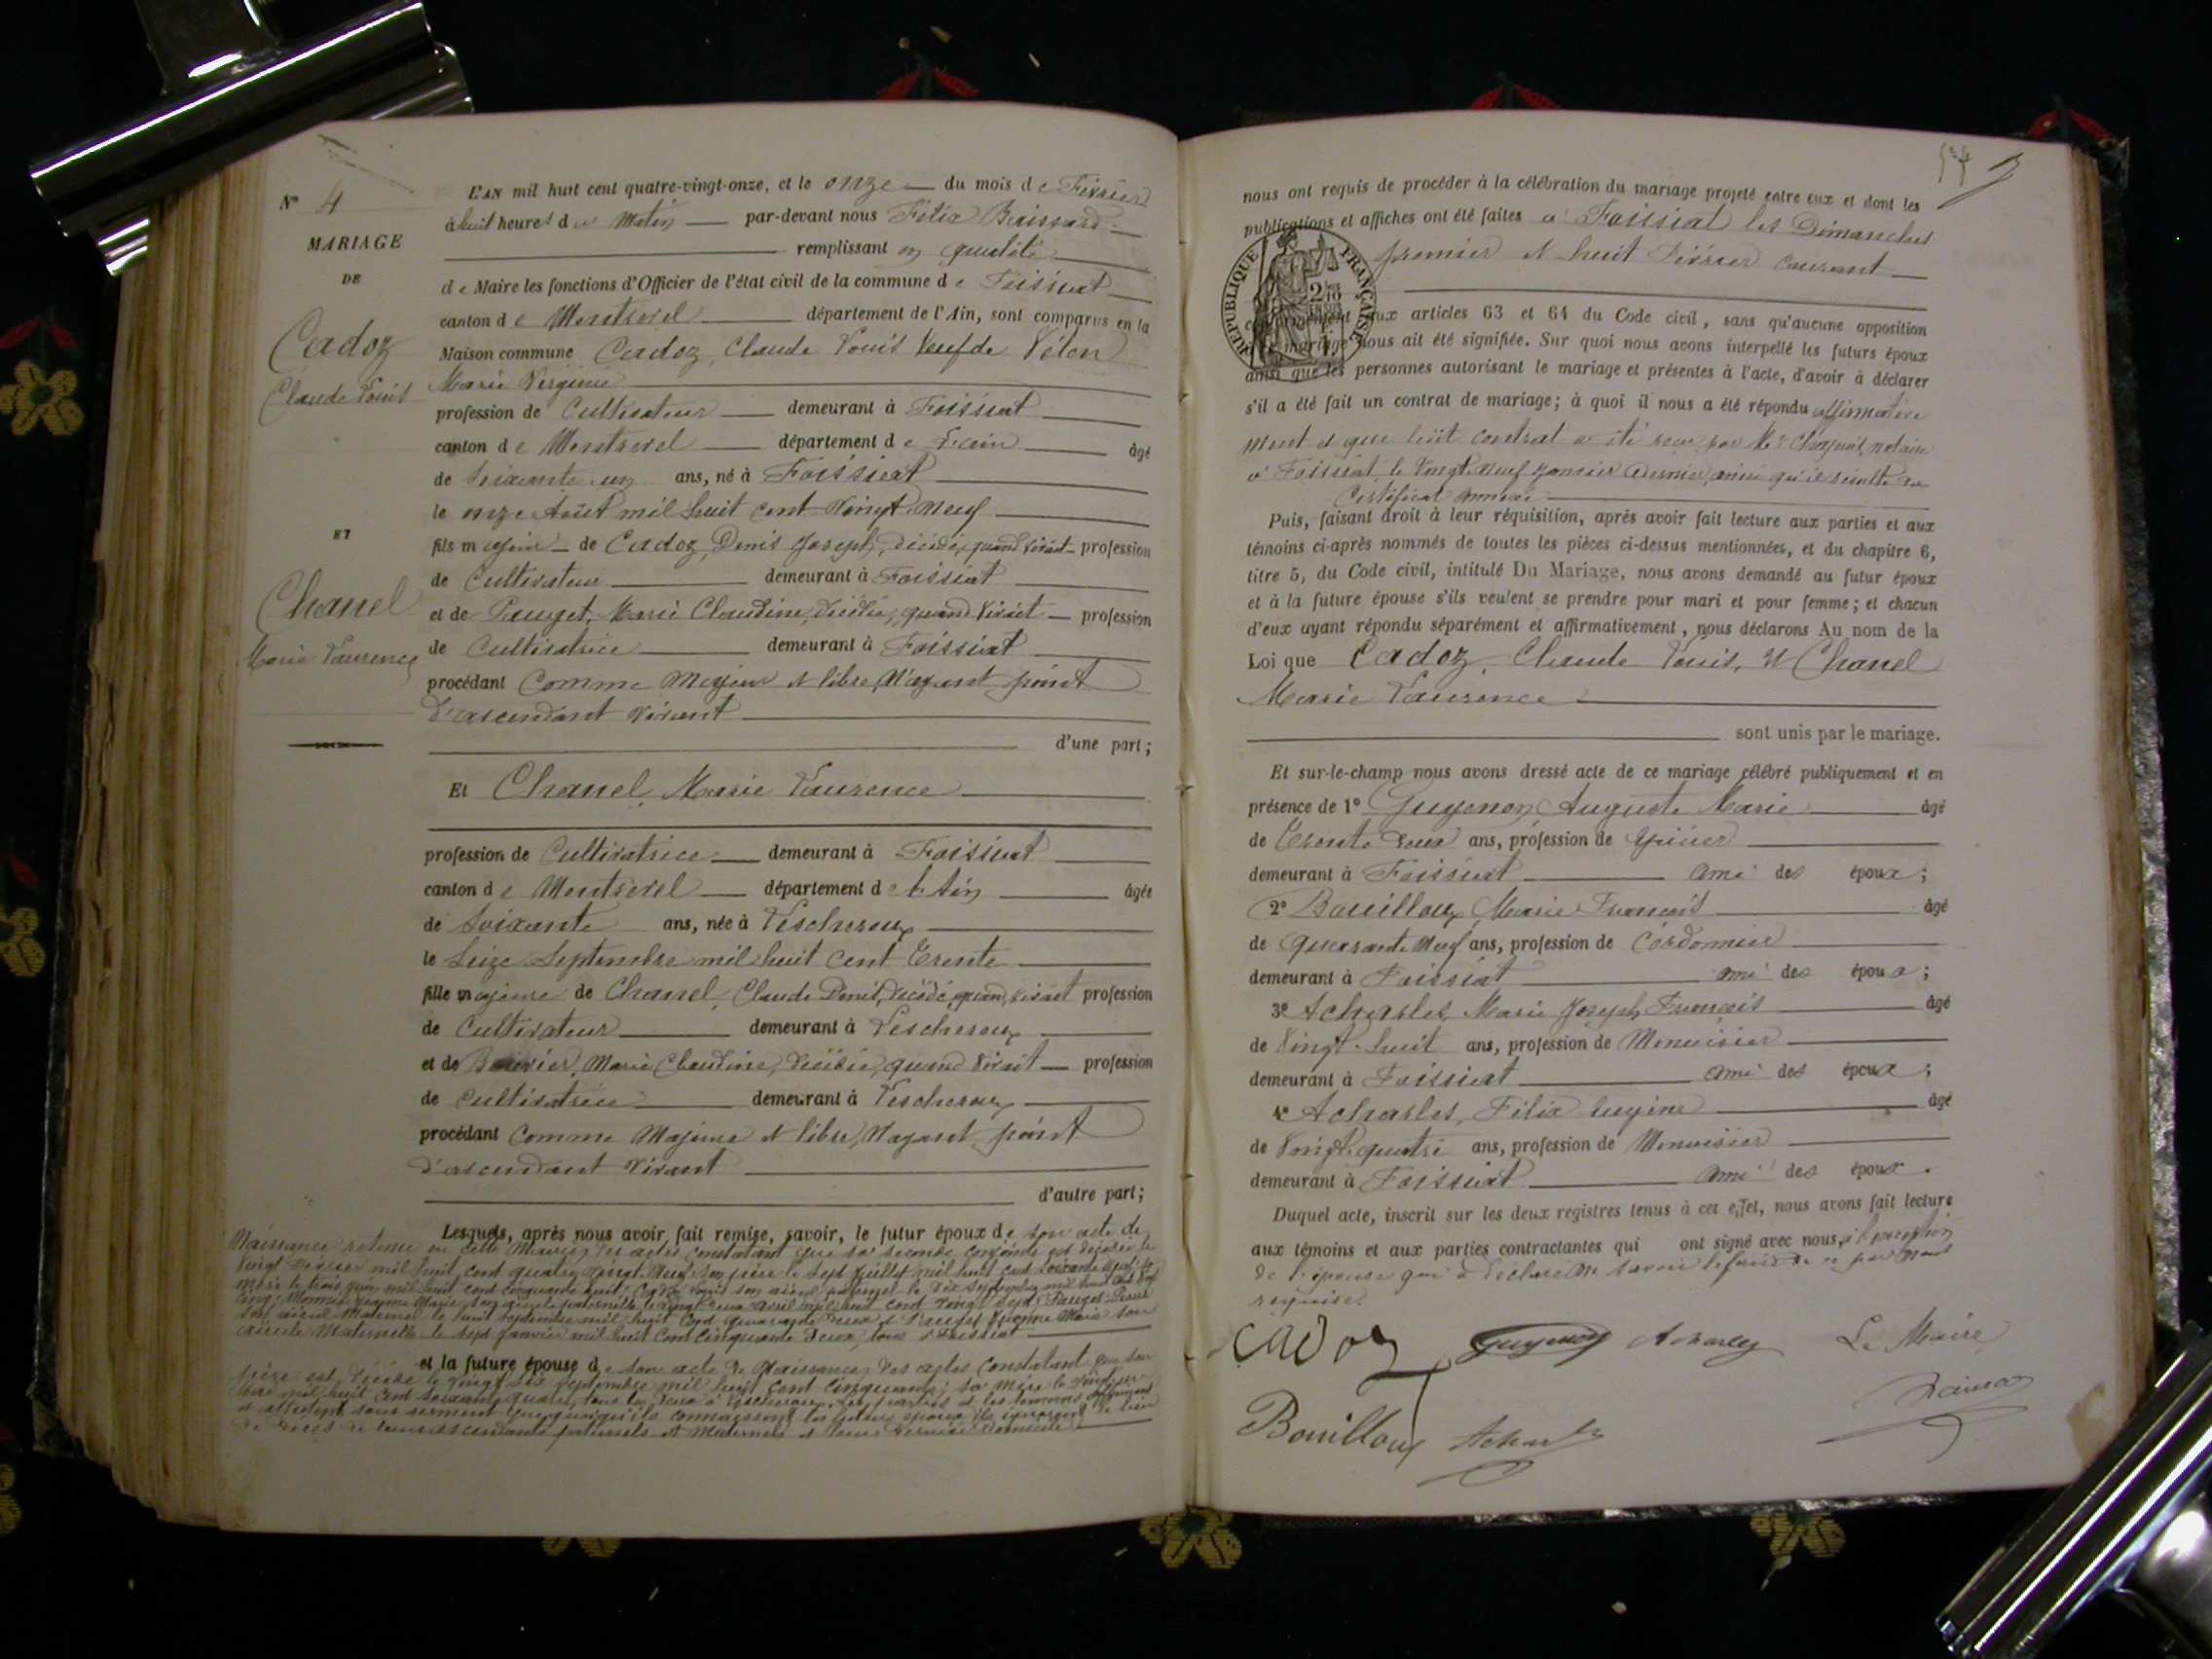 N° 4
MARIAGE
DE
Cadoz
Claude Louis
ET
Chanel
Marie Laurence
L'AN mil huit cent quatre-vingt-onze, et le onze du mois de Février
à huit heures du Matin par-devant nous Félix
remplissant en qualité
de Maire les fonctions d'Officier de l'état civil de la commune de Foissiat
canton de Montrevel département de l'Ain, sont comparus en la
Maison commune Cadoz, Claude Louis Veuf de Vélon
Marie Virginie
profession de Cultivateur demeurant à Foissiat
canton de Montrevel département de L'ain âgé
de Soixante un ans, né à Foissiat
le onze Août mil huit cent Vingt Neuf
fils majeur de Cadoz, Denis Joseph, décédé, quand vivait profession
de Cultivateur demeurant à Foissiat
et de Pauget, Marie Claudine, décédée, quand Vivait profession
de Cultivatrice demeurant à Foissiat
procédant Comme Majeur et libre, N'ayant point
d'ascendant Vivant
d'une part;
Et Chanel, Marie Laurence
profession de Cultivatrice demeurant à Foissiat
canton de Montrevel département de l'Ain âgée
de Soixante ans, née à Lescheroux
le Seize Septembre mil huit Cent Trente
fille majeure de Chanel, Claude Denis, décédé, quand vivait profession
de Cultivateur demeurant à Lescheroux
et de Bouvier, Marie Claudine, décédée, quand Vivait profession
de Cultivatrice demeurant à Lescheroux
procédant Comme Majeure et libre, N'ayant point
d'ascendant Vivant
d'autre part;
Lesquels, après nous avoir fait remise, savoir, le futur époux de son acte de
Naissance retenu en cette Mairie, Des actes constatant que sa seconde conjointe est décédée le
Vingt Février mil huit cent quatre vingt Neuf, Son père le Sept Juillet mil huit cent soixante sept, sa
mère le trois Juin mil huit cent cinquante huit; Cadoz Louis son aïeul paternel le Dix Septembre mil huit cent
cinq; Jeanne Marie, son aïeule paternelle, le Vingt deux avril mil huit cent Vingt Sept; Pauget Pierre
son aïeul Maternel le huit Septembre mil huit Cent quarante Deux et Marie son
aïeule Maternelle le sept Janvier mil huit Cent Cinquante Deux, tous à Foissiat
et la future épouse de son acte de Naissance, Des actes Constatant que son
père est Décédé le Vingt six Septembre mil huit cent Cinquante; sa Mère le
mil huit Cent Soixante quatre, tous les Deux à Lescheroux. Les parties et les témoins affirment
et attestent sous serment que quoiqu'ils connaissent les futurs époux ils ignorent le lieu
de Décès de leurs ascendants paternels et Maternels et leur Dernier Domicile
nous ont requis de procéder à la célébration du mariage projeté entre eux et dont les
publications et affiches ont été faites à Foissiat les Dimanches
premier et huit Février courant
RÉPUBLIQUE FRANÇAISE
conformément aux articles 63 et 64 du Code civil, sans qu'aucune opposition
mariage nous ait été signifiée. Sur quoi nous avons interpellé les futurs époux
ainsi que les personnes autorisant le mariage et présentes à l'acte, d'avoir à déclarer
s'il a été fait un contrat de mariage; à quoi il nous a été répondu affirmative
ment et que ledit contrat a été reçu par Me notaire
à Foissiat, le Vingt neuf Janvier dernier, ainsi qu'il résulte du
Certificat annexé
Puis, faisant droit à leur réquisition, après avoir fait lecture aux parties et aux
témoins ci-après nommés de toutes les pièces ci-dessus mentionnées, et du chapitre 6,
titre 5, du Code civil, intitulé Du Mariage, nous avons demandé au futur époux
et à la future épouse s'ils veulent se prendre pour mari et pour femme; et chacun
d'eux ayant répondu séparément et affirmativement, nous déclarons Au nom de la
Loi que Cadoz, Claude Louis, et Chanel
Marie Laurence
sont unis par le mariage.
Et sur-le-champ nous avons dressé acte de ce mariage célébré publiquement et en
présence de 1° Guyenon, Auguste Marie âgé
de Trente Deux ans, profession de
demeurant à Foissiat ami des époux;
2° Bouilloux, Marie François âgé
de quarante Neuf ans, profession de Cordonnier
demeurant à Foissiat ami des époux;
3° Acharles, Marie Joseph François âgé
de Vingt huit ans, profession de Menuisier
demeurant à Foissiat ami des époux;
4° Acharles, Félix Eugène âgé
de Vingt quatre ans, profession de Menuisier
demeurant à Foissiat ami des époux.
Duquel acte, inscrit sur les deux registres tenus à cet effet, nous avons fait lecture
aux témoins et aux parties contractantes qui ont signé avec nous, à l'exception
de l'épouse qui a déclaré ne savoir le faire de ce par nous
requise.
CADOZ Guyenon Acharles Le Maire
Bouilloux Acharles